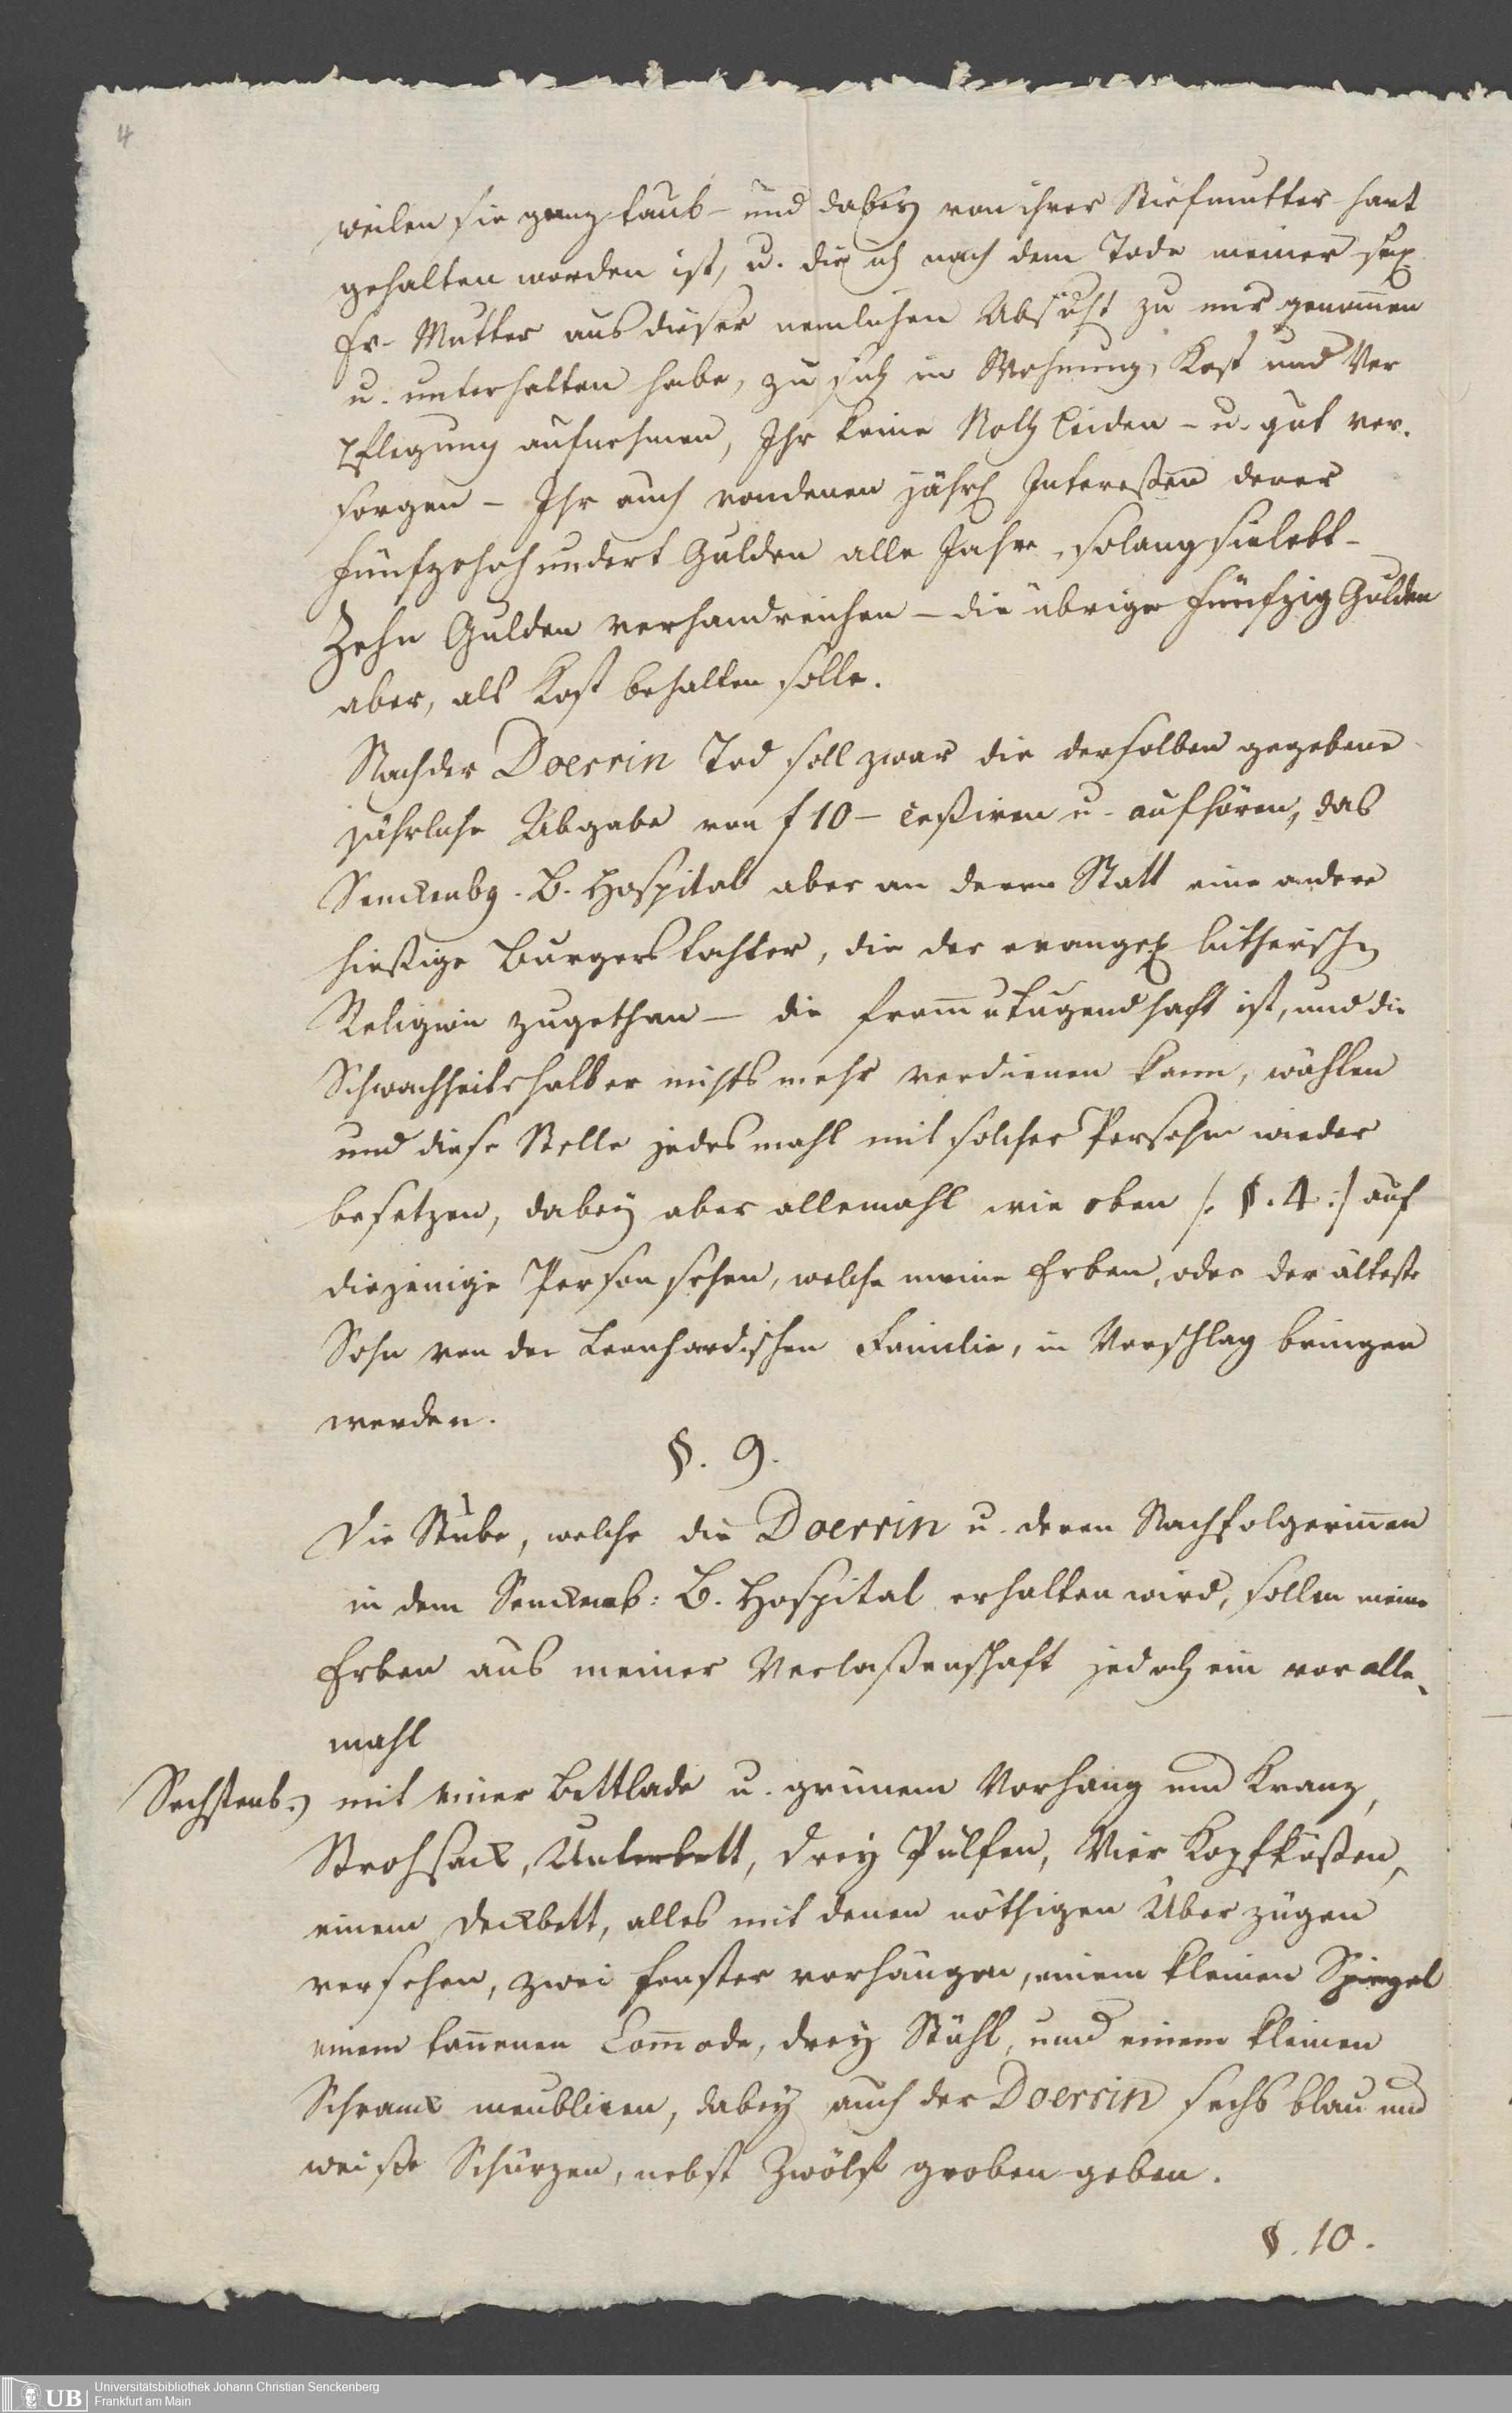 4
weilen sie ganz taub - und dabey von ihrer Stiefmutter hart
gehalten worden ist, u. die ich nach dem Tode meiner seel.
Fr. Mutter aus dieser nemlichen Absicht zu mir genom̄en
u. unterhalten habe, zu sich in Wohnung, Kost und Ver
pflegung aufnehmen, Ihr keine Noth leiden - u. gut ver-
sorgen - Ihr auch von denen jährl. Interessen derer
fünfzehnhundert Gulden alle Jahre, solang sie lebt -
Zehn Gulden verhandreichen - die übrige fünfzig Gulden
aber, als Kost behalten solle.
Nach der Doerrin Tod soll zwar die derselben gegebene
jährliche Abgabe von f 10 - cessiren u. aufhören, das
Senckenbg. B. Hospital aber an deren Statt eine andere
hießige Burgerstochter, die der evangel. lutherischen
Religion zugethan - die from̄ u. tugendhaft ist, und die
Schwachheitshalber nichts mehr verdienen kann, wählen
und diese Stelle jedesmahl mit solcher Persohn wieder
besetzen, dabey aber allemahl wie oben /: §. 4 :/ auf
diejenige Person sehen, welche meine Erben, oder der älteste
Sohn von der Leonhardischen Familie, in Vorschlag bringen
werden.
§. 9.
Die Stube, welche die Doerrin u. deren Nachfolgerin̄en
in dem Senckenb: B. Hospital erhalten wird, sollen meine
Erben aus meiner Verlaßenschaft jedoch ein vor alle-
mahl
Sechstens.) mit einer Bettlade u. grünem Vorhang und Kranz,
Strohsack, Unterbett, drey Pülfen, Vier Kopfküßen,
einem Deckbett, alles mit denen nöthigen Überzügen
versehen, zwei Fenster vorhängen, einem kleinen Spiegel
einem tan̄enen Com̄ode, drey Stühl, und einem kleinen
Schranck meubliren, dabey auch der Doerrin sechs blau und
weiße Schürzen, nebst Zwölf groben geben.
§. 10.
UB
Universitätsbibliothek Johann Christian Senckenberg
Frankfurt am Main